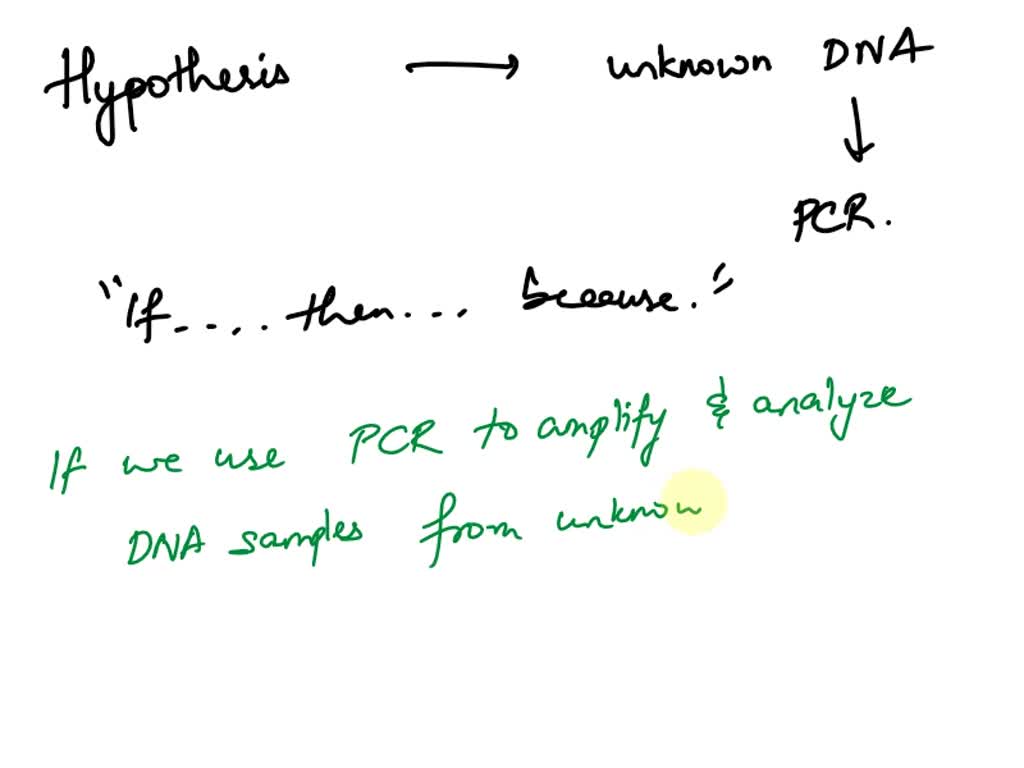 Hypothesis → unknown DNA
↓
PCR.
"If..... then... because."
If we use PCR to amplify & analyze
DNA samples from unknow